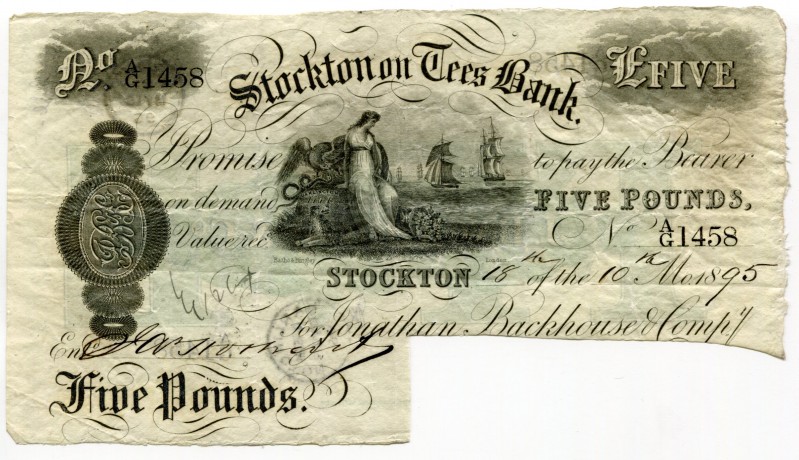 No. A/G1458
£FIVE
Stockton on Tees Bank.
I Promise to pay the Bearer
on demand FIVE POUNDS,
Value rec'd No A/G1458
STOCKTON 18th of the 10th Mo 1895
For Jonathan Backhouse & Compy
Entd
Five Pounds.